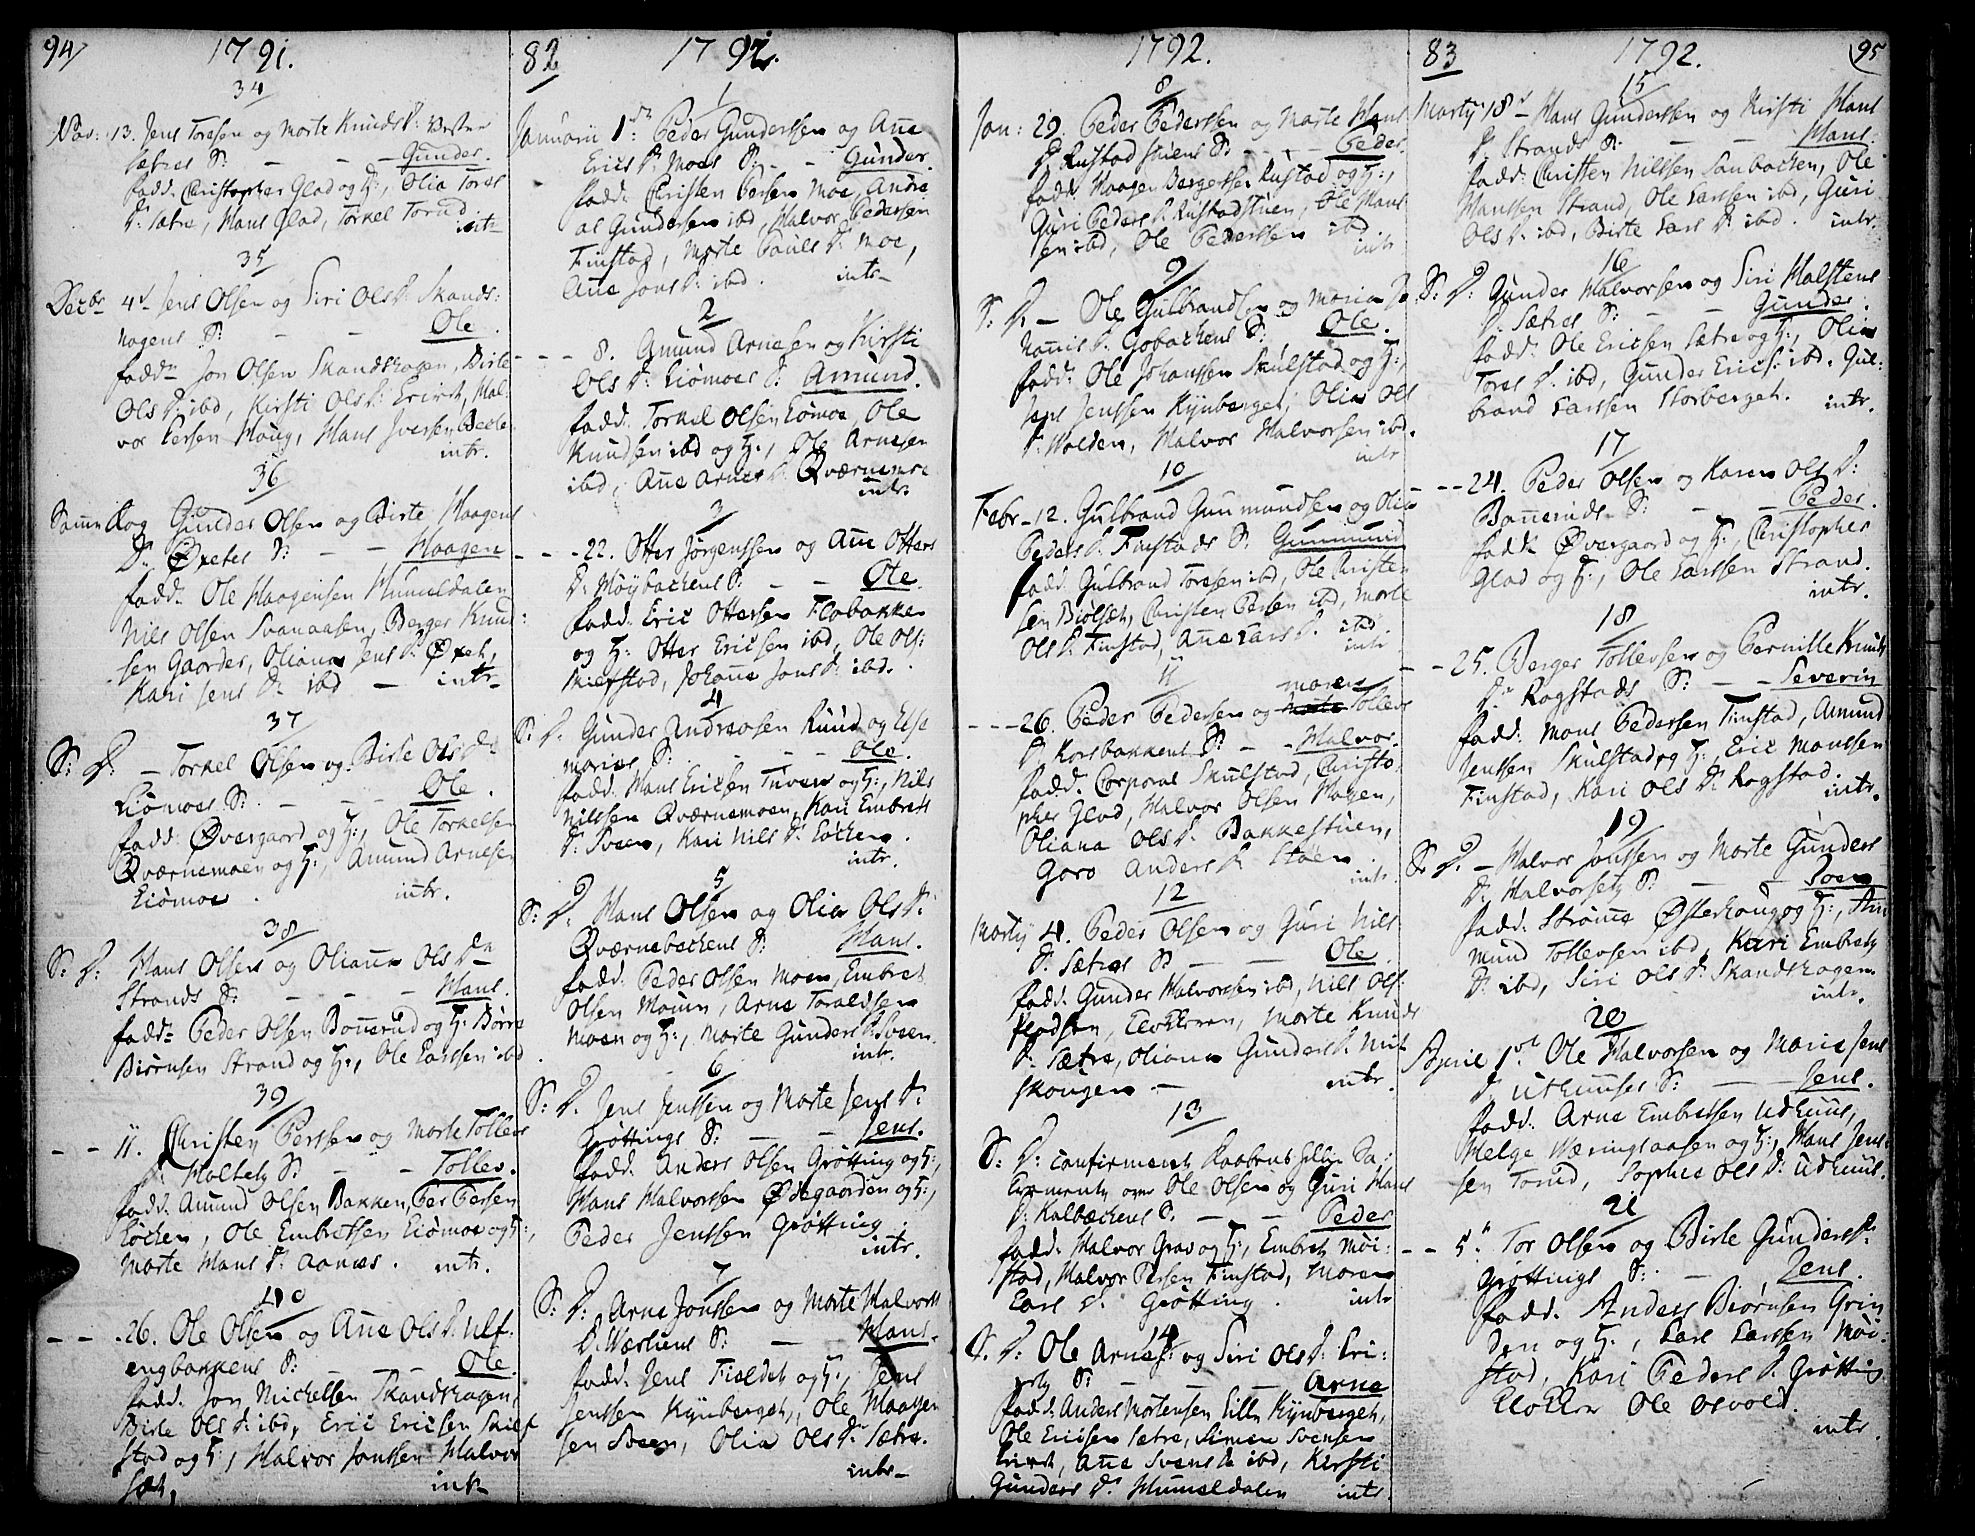 94/ 1791.
34
Nov: 13. Jens Toresen og Marte Knuds D: Vester
Sætres S: - - - Gunder.
fadd. Christopher Glad og H:, Olia Tores
D: Sætre, Hans Glad, Torkel Torud
intr
35
Decbr 4d Jens Olsen og Siri Ols D: Skands:
hagens S: - - Ole.
fadd Jon Olsen Skandshagen, Birte
Ols D: ibd, Kirsti Ols D:
vor Persen Houg, Hans Iversen
intr.
36
Samme dag Gunder Olsen og Birte Haagens
D: Øxetes S: - - Haagen
fadd. Ole Haagensen Hummeldalen
Nils Olsen Svanaasen, Berger Knud:
sen Gaarder, Oliana Jens D: Øxet,
Kari Jens D: ibd - intr
37
S: D: - Torkel Olsen og Birte Ols D:
Eiømoes S: - - Ole.
fadd. Øvergaard og H:, Ole Torkelsen
Qværnemoen og H:, Amund Arnesen
Eiømoe. intr.
38
S: D: Hans Olsen og Oliana Ols D:
Strands S: - - - Hans.
fadd. Peder Olsen Bonnerud og H: Børre
Biørnsen Strand og H:, Ole Larssen ibd.
39
- - 11. Christen Persen og Marte Tollevs
D: Holtets S: - - Tollev.
fadd. Amund Olsen Bakken, Per Persen
Løcken, Ole Embretsen Eiømoe og H:,
Marte Hans D: Aanæs. intr.
40
- - - 26. Ole Olsen og Ane Ols D: Ulf:
engbakkens S: - - - Ole
fadd. Jon Michelsen Skandshagen,
Birte Ols D: ibd, Eric Ericsen Skief
stad og H:, Halvor Jonssen Halvor
sæt, intr
82 1792.
1
Januarii 1ste Peder Gunderssen og Ane
Erics D: Moes S: - - Gunder.
fadd: Christen Persen Moe, Andre
as Gundersen ibd, Halvor Pedersen
Finstad, Marte Pauls D: Moe,
Ane Jons D: ibd. intr
2
- - - 8. Amund Arnesen og Kirsti
Ols D: Eiømoes S: Amund.
fadd. Torkel Olsen Eiømoe, Ole
Knudsen ibd og H:, Ole Arnesen
ibd, Ane Arnes D: Qværnemoe
intr.
3
- - - 22. Otter Jørgenssen og Ane Otters
D: Møybackens S: - - Ole.
fadd. Eric Ottersen Flobakken
og H: Otter Ericsen ibd, Ole Ols:
Skiefstad, Johane Jons D: ibd.
4
S: D. Gunder Andreasen Ruud og Else
Maries S: - - - Ole.
fadd. Hans Ericsen Tuven og H:, Nils
Nilssen Qværnemoen, Kari Embrets
D: Sveen, Kari Nils D: Løcken.
intr.
5
S: D. Hans Olsen og Olia Ols D:
Qværnebackens S: Hans.
fadd. Peder Olsen Moen, Embret
Olsen Moen, Arne Toraldsen
Moen og H:, Marte Gunders D: Sveen.
intr.
6
S: D. Jens Jenssen og Marte Jens D:
Grøttings S: - - Jens.
fadd. Anders Olsen Grøtting og H:,
Hans Halvorsen Ødegaarden og H:,
Peder Jenssen Grøtting.
intr.
7
S: D: Arne Jonssen og Marte Halvors
D. S: - Hans.
fadd. Jens Fieldet og H:, Jens
Jenssen Kynberget, Ole
sen Sveen, Olia Ols D: Sætre.
intr
1792.
8
Jan: 29. Peder Pederssen og Marte Hans
D. Rustad stuens S: - - Peder.
fadd. Haagen Bergersen Rustad og H:,
Guri Peders D. Rustadstuen, Ole Hans
sen ibd, Ole Pederssen ibd
intr
9
S: D. - Ole Gulbrandsen og Maria Jo:
hannis D. Gobackens S: Ole.
fadd. Ole Johanssen Skulstad og H:,
Jens Jenssen Kynberget, Olia Ols
D. Holden, Halvor Halvorsen ibd.
intr
10
Febr - 12. Gulbrand Gunmundsen og Olia
Peders D. Finstads S. Gunmund
fadd. Gulbrand Toresen ibd, Ole Christen
sen Biølset, Christen Persen ibd, Marte
Ols D. Finstad, Ane Lars D. ibd
intr
11
- - - 26. Peder Pedersen og Maren Tollevs
D. Korsbakkens S: - - Halvor.
fadd. Corporal Skulstad, Christo:
pher Glad, Halvor Olsen Hagen,
Oliana Ols D. Bakkestuen,
Goro Anders D. Støen.
intr.
12
Martij 4. Peder Olsen og Guri Nils
D. Sætres S: - - Ole.
fadd. Gunder Halvorsen ibd, Nils Ols:
Klokkeren, Marte Knuds
D: Sætre, Oliana Gunders D. Mit
skougen - intr.
13
S: D: confirmeret
over Ole Olsen og Guri Hans
D: Kalbackens S. - - Peder
fadd. Halvor Grav og H:, Embret Møi:
stad, Halvor Persen Finstad, Maren
Lars D. Grøtting. intr
14
S. D: Ole Arnes: og Siri Ols D:
S: - - - Arne
fadd: Anders Mortensen Lille Kynberget,
Ole Ericsen Sætre, Simen Svensen
Ane Svens D. ibd, Kirsti
Gunders D. Hummeldalen intr.
83 1792. 95
15
Martij 18d - Hans Gunderssen og Kirsti Hans
D. Strands S: - - Hans.
fadd: Christen Nilssen Sandbacken, Ole
Hanssen Strand, Ole Larssen ibd, Guri
Ols D. ibd, Birte Lars D: ibd. intr.
16
S: D: Gunder Halvorsen og Siri Halstens
D. Sætres S: - - Gunder.
fadd: Ole Ericsen Sætre og H:, Olia
Tores D. ibd, Gunder Erics: ibd. Gul:
brand Larssen Storberget. intr.
17
- - 24. Peder Olsen og Karen Ols D:
Bonneruds S: - - Peder.
fadd: Øvergaard og H: Christopher
Glad og H:, Ole Larssen Strand.
intr.
18
- - 25. Berger Tollevsen og Pernille Knuds
D: Rogstads S: - - Severin
fadd: Mons Pedersen Finstad, Amund
Jenssen Skulstad og H:, Eric Monssen
Finstad, Kari Ols D: Rogstad.
intr.
19
S: D. - Halvor Jonssen og Marte Gunders
D: Halvorsets S: - -
fadd: Strøme Østerhaug og H:, Am
mund Tollevsen ibd, Kari Embrets
D. ibd, Siri Ols D. Skandshagen.
intr.
20
Aprill 1ste Ole Halvorsen og Marie Jens
D. Udhuuses S: - - Jens.
fadd. Arne Embretsen Udhuus,
Helge Wæringsaasen og H:, Hans Jens:
sen Torud, Sophie Ols D: Udhuus.
21
- - 5. Tor Olsen og Birte Gunders D:
Grøttings S: - Jens.
fadd. Anders Biørnsen Grin
den og H:, Lars Larssen Møi:
stad, Kari Peders D. Grøtting
Klokker Ole Osvold.
intr.